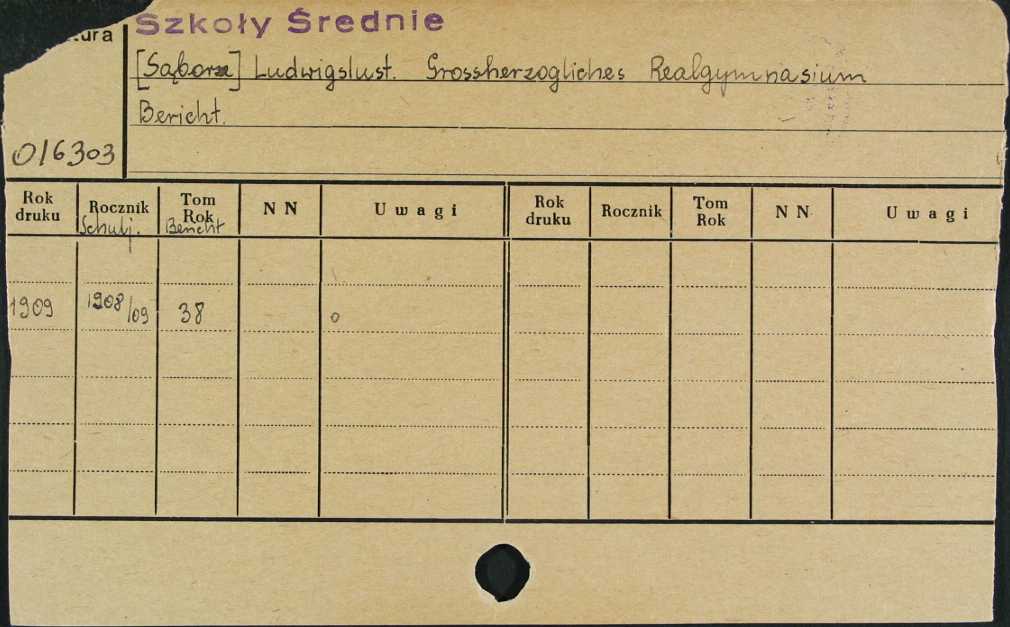 Szkoły Średnie
tura
[Sąborze] Ludwigslust. Grossherzogliches Realgymnasium
Bericht.
016303
Rok druku Rocznik Tom Rok NN Uwagi Rok druku Rocznik Tom Rok NN Uwagi
Schulj. Bericht
1909 1908/09 38 o